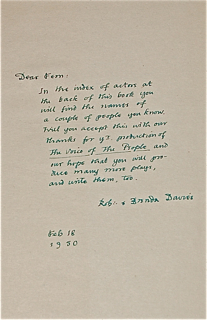 Dear Fern:
In the index of actors at
the back of this book you
will find the names of
a couple of people you know.
Will you accept this with our
thanks for yr. production of
The Voice of The People, and
our hope that you will pro-
duce many more plays,
and write them, too.
Rob: & Brenda Davies
Feb 18
1950